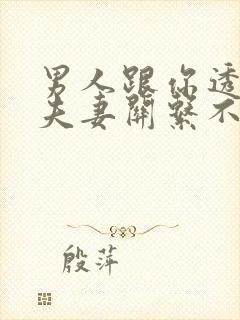 男人跟你透
夫妻關系不
殷萍